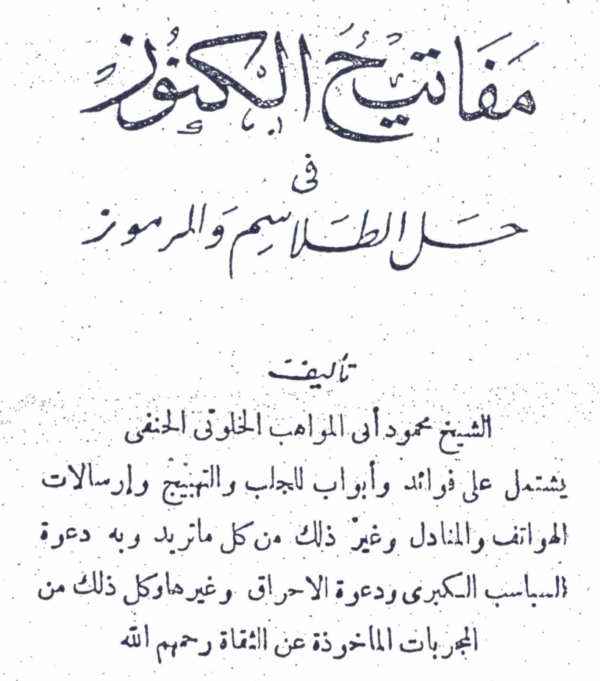 مَفَاتيحُ الكنُوز
فى
حَل الطَلاسِم وَالمرموز
تأليف
الشيخ محمود أبى المواهب الخلوتى الحنفى
يشتمل على فوائد وأبواب للجلب والتهييج وإرسالات
الهواتف والمنادل وغير ذلك من كل ماتريد وبه دعوة
السباسب الكبرى ودعوة الاحراق وغيرها وكل ذلك من
المجربات الماخوذة عن الثقاة رحمهم الله